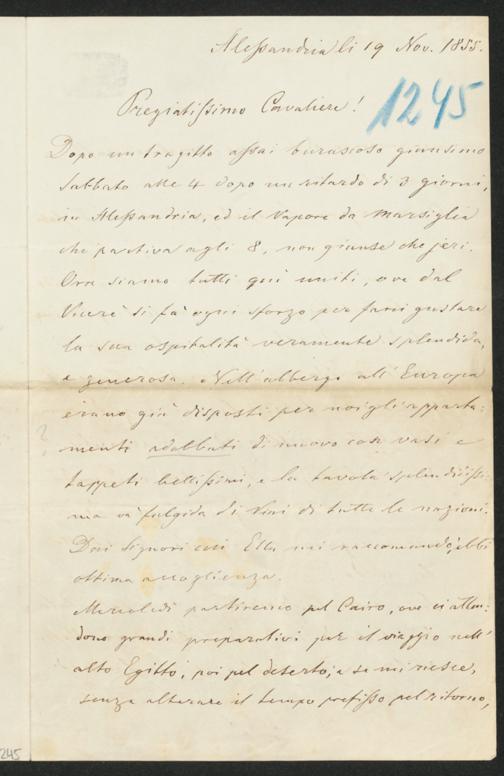 Alessandria li 19 Nov. 1855.
Pregiatissimo Cavaliere!
1245
Dopo un tragitto assai burascoso giunsimo
Sabbato alle 4 dopo un ritardo di 3 giorni,
in Alessandria, ed il Vapore da Marsiglia
che partiva agli 8, non giunse che jeri.
Ora siamo tutti quì uniti, ove dal
Vicerè si fà ogni sforzo per farci gustare
la sua ospitalità veramente splendida,
e generosa. Nell'albergo all'Europa
erano già disposti per noi gli apparta-
menti addobbati di nuovo con vasi e
tappeti bellissimi, e la tavola splendidissi-
ma va fulgida di Vini di tutte le nazioni.
Dai Signori cui Ella mi raccomandò, ebbi
ottima accoglienza.
Mercoledì partiremo pel Cairo, ove ci atten-
dono grandi preparativi per il viaggio nell'
alto Egitto, poi pel deserto, e se mi riesce,
senza alterare il tempo prefisso pel ritorno,
245